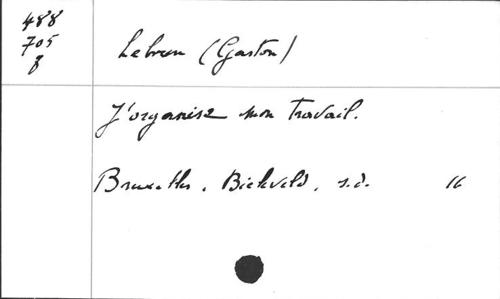 488
705
8
Lebrun (Gaston)
J'organise mon travail.
Bruxelles, Bieleveld, s.d. 16